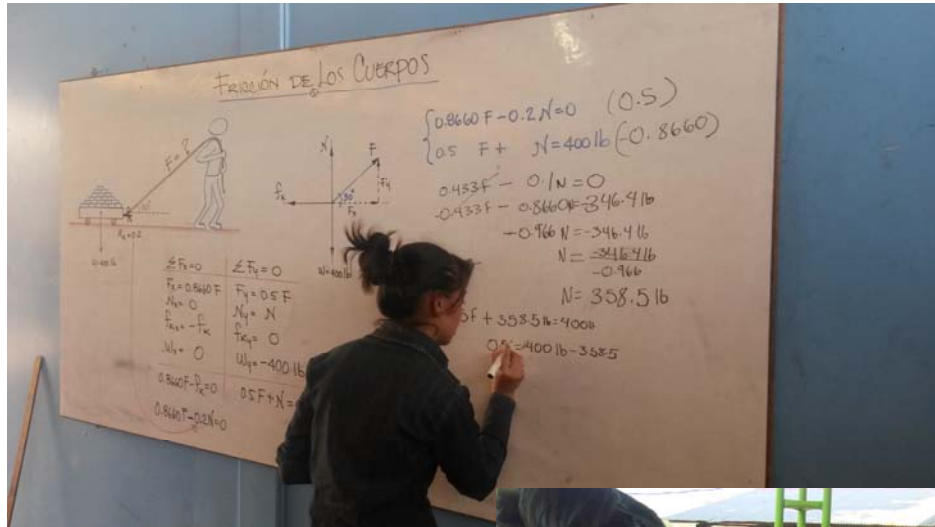 FRICCIÓN DE LOS CUERPOS
F = ?
30°
μk=0.2
W=400 lb
N
F
Fy
fk
30°
Fx
W=400 lb
ΣFx=0
ΣFy=0
Fx=0.8660F
Fy=0.5F
Nx=0
Ny=N
fkx=-fk
fky=0
Wx=0
Wy=-400 lb
0.8660F-fk=0
0.5F+N=
0.8660F-0.2N=0
0.8660 F-0.2 N=0 (0.5)
0.5 F+ N=400 lb (-0.8660)
0.433F - 0.1N=0
-0.433F - 0.8660N=-346.4 lb
-0.966 N=-346.4 lb
N= -346.4 lb
-0.966
N= 358.5 lb
5F + 358.5 lb=400 lb
=400 lb-358.5